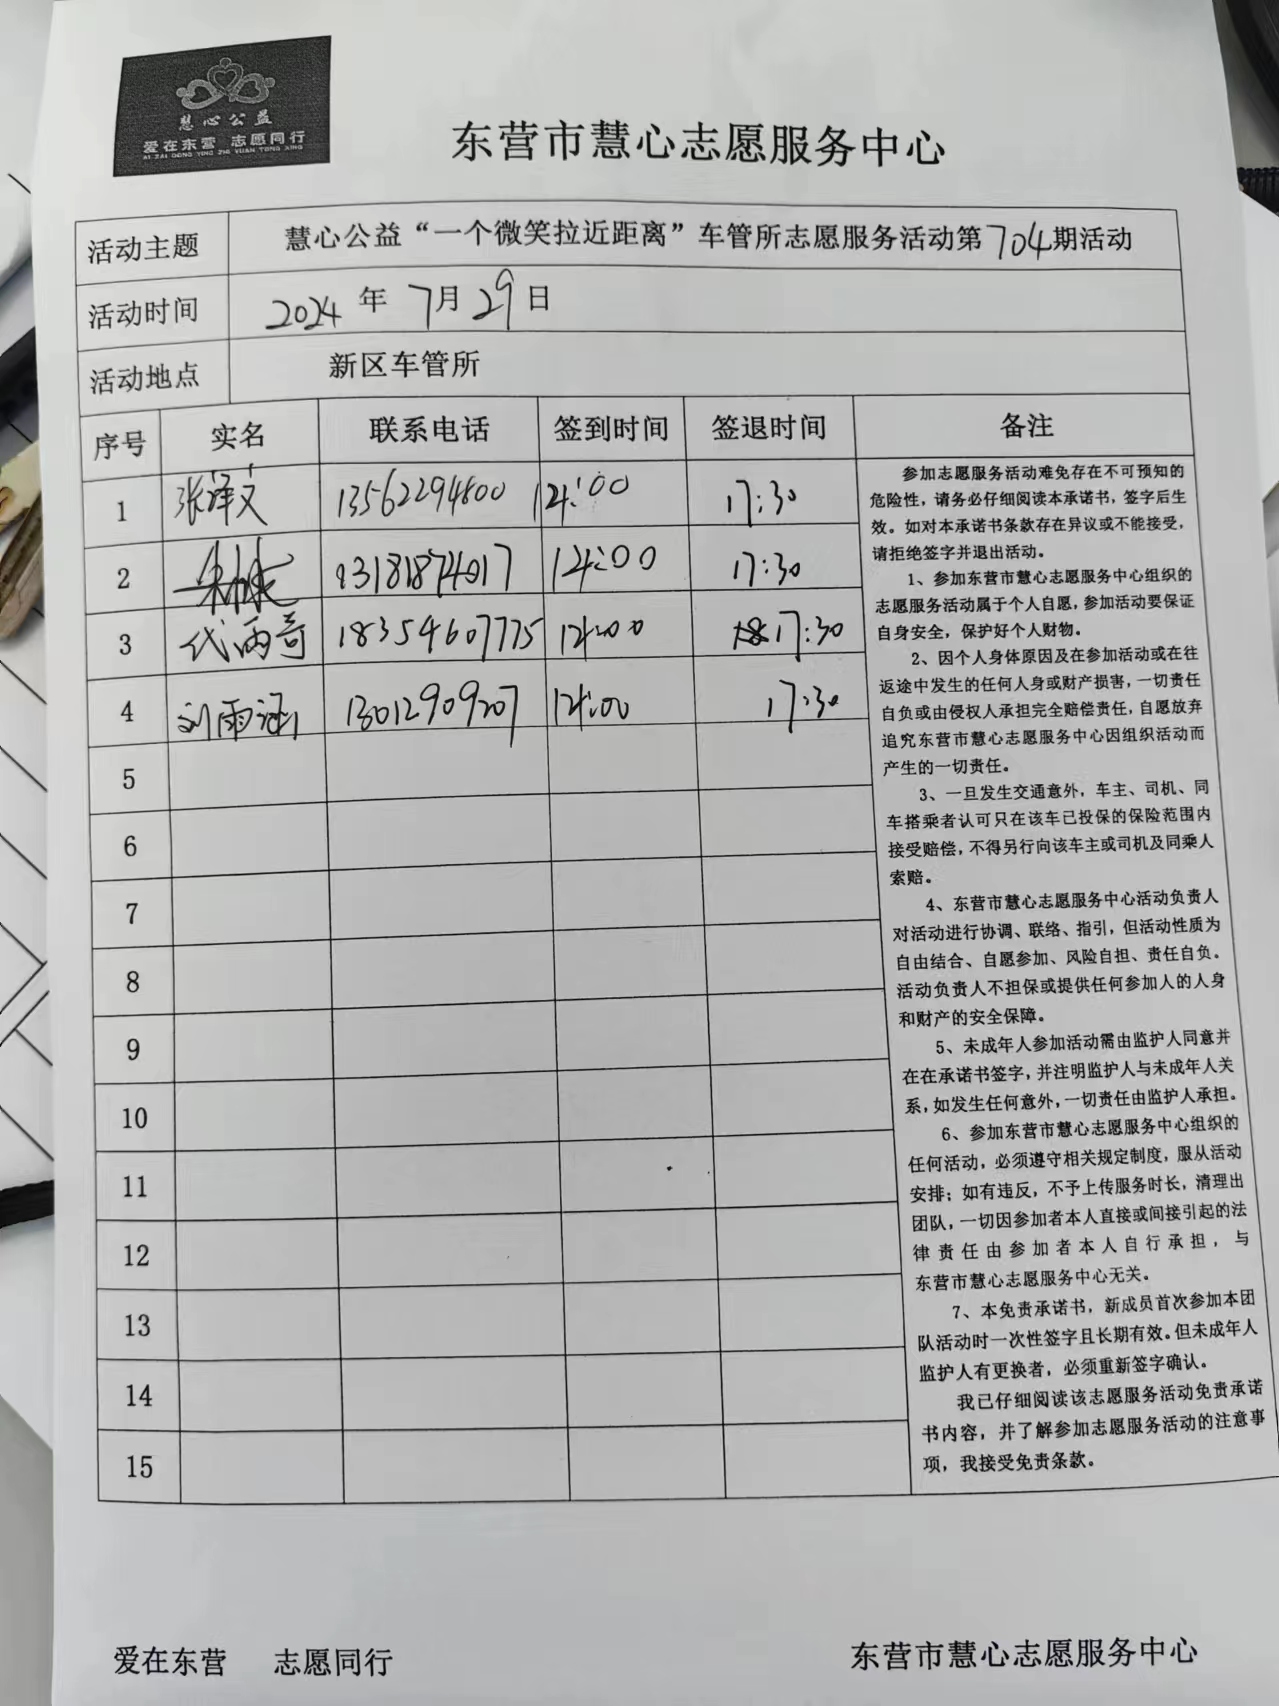 慧心公益
爱在东营 志愿同行
AI ZAI DONG YING ZHI YUAN TONG XING
东营市慧心志愿服务中心
活动主题 慧心公益“一个微笑拉近距离”车管所志愿服务活动第704期活动
活动时间 2024年7月29日
活动地点 新区车管所
序号 实名 联系电话 签到时间 签退时间 备注
1 张泽文 13562294800 14:00 17:30
2 13181874017 14:00 17:30
3 代雨奇 18354607775 14:00 17:30
4 刘雨涵 13012909207 14:00 17:30
5
6
7
8
9
10
11
12
13
14
15
参加志愿服务活动难免存在不可预知的
危险性，请务必仔细阅读本承诺书，签字后生
效。如对本承诺书条款存在异议或不能接受，
请拒绝签字并退出活动。
1、参加东营市慧心志愿服务中心组织的
志愿服务活动属于个人自愿，参加活动要保证
自身安全，保护好个人财物。
2、因个人身体原因及在参加活动或在往
返途中发生的任何人身或财产损害，一切责任
自负或由侵权人承担完全赔偿责任，自愿放弃
追究东营市慧心志愿服务中心因组织活动而
产生的一切责任。
3、一旦发生交通意外，车主、司机、同
车搭乘者认可只在该车已投保的保险范围内
接受赔偿，不得另行向该车主或司机及同乘人
索赔。
4、东营市慧心志愿服务中心活动负责人
对活动进行协调、联络、指引，但活动性质为
自由结合、自愿参加、风险自担、责任自负。
活动负责人不担保或提供任何参加人的人身
和财产的安全保障。
5、未成年人参加活动需由监护人同意并
在在承诺书签字，并注明监护人与未成年人关
系，如发生任何意外，一切责任由监护人承担。
6、参加东营市慧心志愿服务中心组织的
任何活动，必须遵守相关规定制度，服从活动
安排；如有违反，不予上传服务时长，清理出
团队，一切因参加者本人直接或间接引起的法
律责任由参加者本人自行承担，与
东营市慧心志愿服务中心无关。
7、本免责承诺书，新成员首次参加本团
队活动时一次性签字且长期有效。但未成年人
监护人有更换者，必须重新签字确认。
我已仔细阅读该志愿服务活动免责承诺
书内容，并了解参加志愿服务活动的注意事
项，我接受免责条款。
爱在东营 志愿同行 东营市慧心志愿服务中心